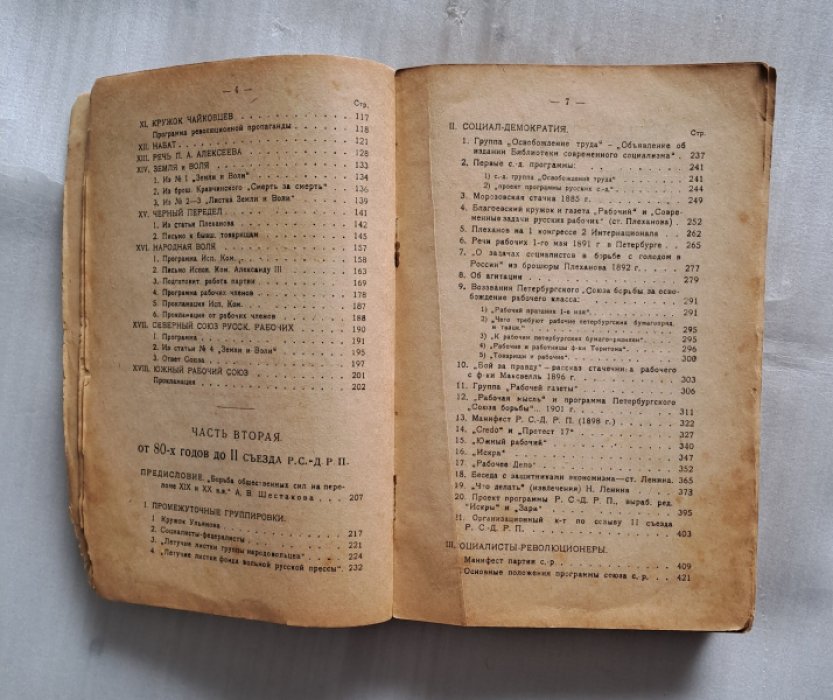 — 4 —
Стр.
XI. КРУЖОК ЧАЙКОВЦЕВ . . . . . . . . . . 117
Программа революционной пропаганды . . . . . 118
XII. НАБАТ . . . . . . . . . . 121
XIII. РЕЧЬ П. А. АЛЕКСЕЕВА . . . . . . . . . . 128
XIV. ЗЕМЛЯ и ВОЛЯ . . . . . . . . . . 133
1. Из № 1 „Земли и Воли" . . . . . . . . . . 134
2. Из брош. Кравчинского „Смерть за смерть" . . . . 136
3. Из № 2—3 „Листка Земли и Воли" . . . . . . 139
XV. ЧЕРНЫЙ ПЕРЕДЕЛ . . . . . . . . . . 141
1. Из статьи Плеханова . . . . . . . . . . 142
2. Письмо к бывш. товарищам . . . . . . . . . . 145
XVI. НАРОДНАЯ ВОЛЯ . . . . . . . . . . 157
1. Программа Исп. Ком. . . . . . . . . . . 158
2. Письмо Испов. Ком. Александру III . . . . . . 163
3. Подготовит. работа партии . . . . . . . . . . 169
4. Программа рабочих членов . . . . . . . . . . 178
5. Прокламация Исп. Ком. . . . . . . . . . . 187
6. Прокламация от рабочих членов . . . . . . . 188
XVII. СЕВЕРНЫЙ СОЮЗ РУССК. РАБОЧИХ . . . . . 190
1. Программа . . . . . . . . . . 191
2. Из статьи № 4 „Земли и Воли" . . . . . . . 195
3. Ответ Союза . . . . . . . . . . 197
XVIII. ЮЖНЫЙ РАБОЧИЙ СОЮЗ . . . . . . . . 201
Прокламация . . . . . . . . . . 202
ЧАСТЬ ВТОРАЯ.
от 80-х годов до II СЪЕЗДА Р.С.-Д.Р.П.
ПРЕДИСЛОВИЕ. „Борьба общественных сил на пере-
ломе XIX и XX в.в." А. В. ШЕСТАКОВА . . . 207
I. ПРОМЕЖУТОЧНЫЕ ГРУППИРОВКИ.
1 Кружок Ульянова . . . . . . . . . . 217
2. Социалисты-федералисты . . . . . . . . . . 221
3. „Летучие листки группы народовольцев" . . . . 224
4. „Летучие листки фонда вольной русской прессы". 232
— 7 —
II. СОЦИАЛ-ДЕМОКРАТИЯ.
Стр.
1. Группа „Освобождение труда" – „Объявление об
издании Библиотеки современного социализма" . 237
2. Первые с.-д. программы: . . . . . . . . . . 241
1) с.-д. группа „Освобождения труда" . . . . . 241
2) „проект программы русских с-д." . . . . . . 244
3. Морозовская стачка 1885 г. . . . . . . . . . . 249
4. Благоевский кружок и газета „Рабочий" и „Совре-
менные задачи русских рабочих" (ст. Плеханова) . 252
5. Плеханов на 1 конгрессе 2 Интернационала . . 262
6. Речи рабочих 1-го мая 1891 г в Петербурге . . . 265
7. „О задачах социалистов в борьбе с голодом в
России" из брошюры Плеханова 1892 г. . . . . . 277
8. Об агитации . . . . . . . . . . 279
9. Воззвания Петербургского „Союза борьбы за осво-
бождение рабочего класса: . . . . . . . . . . 291
1) „Рабочий праздник 1-е мая" . . . . . . . . 291
2) „Чего требуют рабочие петербургских бумагопряд.
и ткацк." . . . . . . . . . . 295
3) „К рабочим петербургских бумаго-прядилен" . . 295
4) „Рабочие и работницы ф-ки Торнтона" . . . . 296
5) „Товарищи рабочие" . . . . . . . . . . 300
10. „Бой за правду" – рассказ стачечника рабочего
с ф-ки Максвелль 1896 г. . . . . . . . . . . 303
11. Группа „Рабочей газеты" . . . . . . . . . . 306
12. „Рабочая мысль" и программа Петербургского
„Союза борьбы"... 1901 г. . . . . . . . . . . 311
13. Манифест Р. С.-Д. Р. П. (1898 г.) . . . . . . 322
14. „Credo" и „Протест 17" . . . . . . . . . . 327
15. „Южный рабочий" . . . . . . . . . . 340
16. „Искра" . . . . . . . . . . 347
17. „Рабочее Дело" . . . . . . . . . . 352
18. Беседа с защитниками экономизма—ст. Ленина. 365
19. „Что делать" (извлечения) Н. Ленина . . . . . 373
20. Проект программы Р. С-Д. Р. П., выраб. ред.
"Искры" и „Заря" . . . . . . . . . . 395
Организационный к-т по созыву II съезда
Р. С.-Д. Р. П. . . . . . . . . . . 403
III. ОЦИАЛИСТЫ-РЕВОЛЮЦИОНЕРЫ.
Манифест партии с. р. . . . . . . . . . . 409
Основные положения программы союза с. р. . . . 421